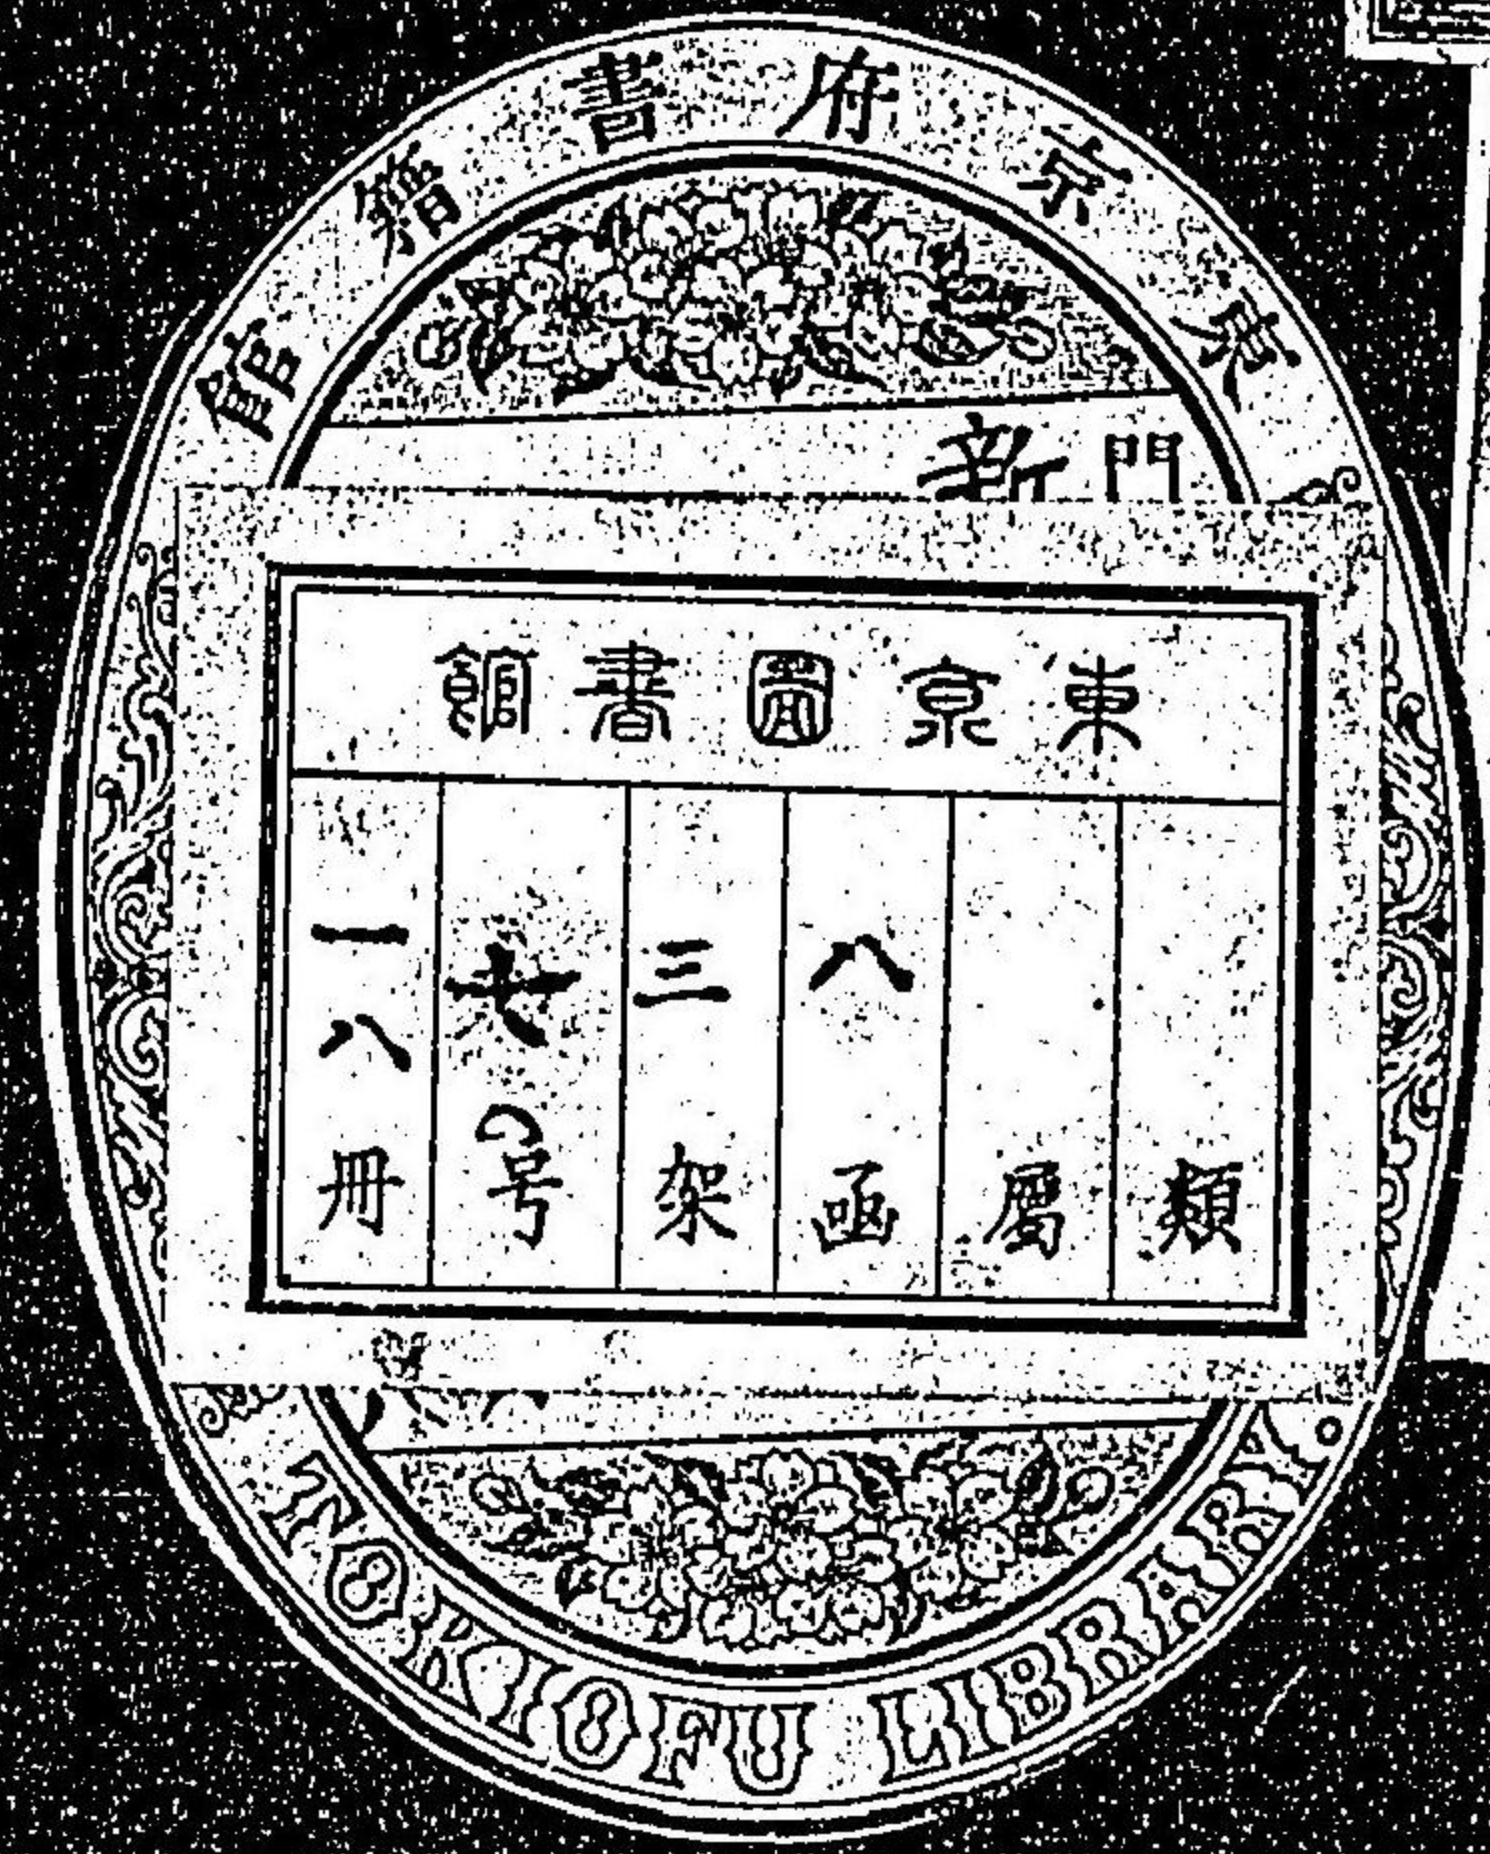 東京府書籍館
門新
東京圖書館
類
屬
八函
三架
七号
一八冊
TOKIOFU LIBRARY.